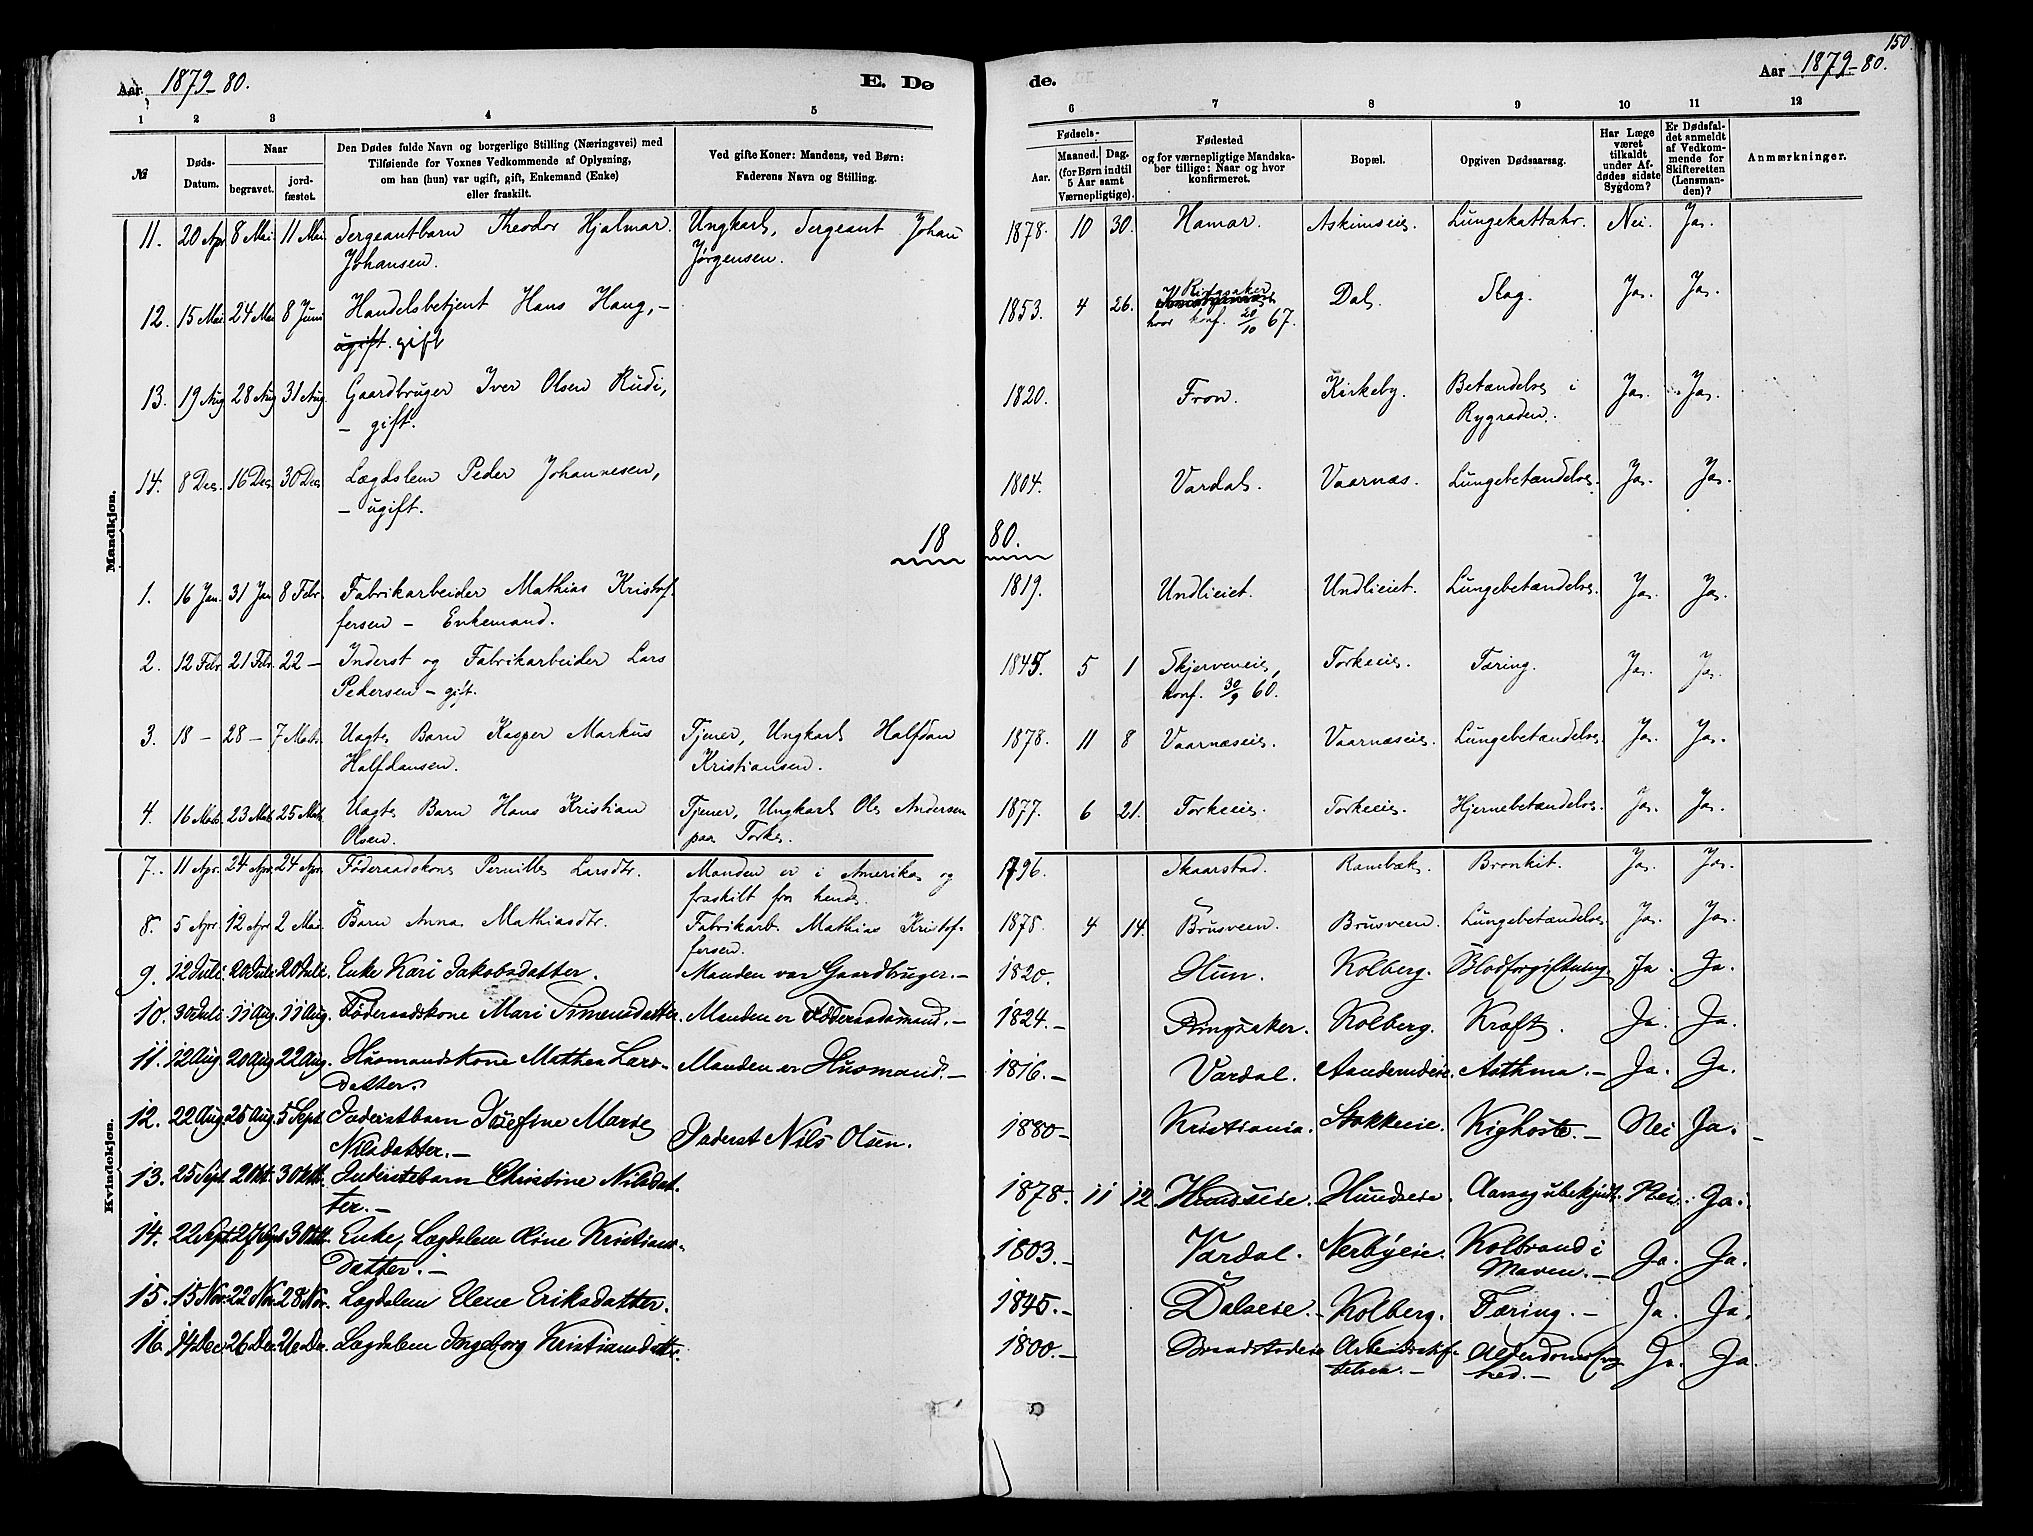 Aar 1879-80.
E. Dø
de.
Aar 1879-80.
150
1 2 3 4 5
6 7 8 9 10 11 12
№
Døds-
Datum.
Naar
begravet.
jord-
fæstet.
Den Dødes fulde Navn og borgerlige Stilling (Næringsvei) med
Tilføiende for Voxnes Vedkommende af Oplysning,
om han (hun) var ugift, gift, Enkemand (Enke)
eller fraskilt.
Ved gifte Koner: Mandens, ved Børn:
Faderens Navn og Stilling.
Fødsels-
Aar.
Maaned. Dag.
(for Børn indtil
5 Aar samt
Værnepligtige).
Fødested
og for værnepligtige Mandska-
ber tillige: Naar og hvor
konfirmeret.
Bopæl.
Opgiven Dødsaarsag.
Har Læge
været
tilkaldt
under Af-
dødes sidste
Sygdom?
Er Dødsfal-
det anmeldt
af Vedkom-
mende for
Skifteretten
(Lensman-
den)?
Anmærkninger.
Mandkjøn.
11. 20 Apr 8 Mai 11 Mai Sergeantbarn Theodor Hjalmar Ungkarl, Sergeant Johan 1878. 10 30. Hamar. Askimseie. Lungekattahr. Nei. Ja.
Johansen. Jørgensen.
12. 15 Mai 24 Mai 8 Juni Handelsbetjent Hans Haug, - 1853. 4 26. Ringsaker, Dal. Slag. Ja. Ja.
ugift. gift hvor konf. 20/10 67.
13. 19 Aug 28 Aug 31 Aug. Gaardbruger Iver Olsen Rudi, 1820. Fron. Kirkeby. Betændelse i Ja. Ja.
- gift. Rygraden.
14. 8 Dec. 16 Dec. 30 Dec Lægdslem Peder Johannesen, 1804. Vardal. Vaarnæs. Lungebetændelse. Ja. Ja.
- ugift.
18 80.
1. 16 Jan. 31 Jan 8 Febr. Fabrikarbeider Mathias Kristof- 1819. Undlieiet. Undlieiet. Lungebetændelse. Ja. Ja.
fersen - Enkemand.
2. 12 Febr. 21 Febr. 22 - Inderst og Fabrikarbeider Lars 1845. 5 1 Skjerveneie, Torkeeie. Tæring. Ja. Ja.
Pedersen - gift. konf. 30/9 60.
3. 18 - 28 - 7 Marts Uægte Barn Kasper Markus Tjener, Ungkarl Halfdan 1878. 11 8 Vaarnæseie. Vaarnæseie. Lungebetændelse. Ja. Ja.
Halfdansen. Kristiansen.
4. 16 Mts. 23 Mts. 25 Mts. Uægte Barn Hans Kristian Tjener, Ungkarl Ole Andersen 1877. 6 21. Torkeeie. Torkeeie. Hjernebetændelse. Ja. Ja.
Olsen. paa Torke.
Kvindekjøn.
7. 11 Apr. 24 Apr. 24 Apr. Føderaadskone Pernille Larsdtr. Manden er i Amerika og 1796. Skaarstad. Rambæk. Bronkit. Ja. Ja.
fraskilt fra hende.
8. 5 Apr. 12 Apr 2 Mai Barn Anna Mathiasdtr. Fabrikarb. Mathias Kristof- 1878. 4 14. Brusveen. Brusveen. Lungebetændelse Ja. Ja.
fersen.
9. 12 Juli 20 Juli 20 Juli. Enke Kari Jakobsdatter. Manden var Gaardbruger. - 1820. Hun. Kolberg. Blodforgiftning Ja. Ja.
10. 30 Juli 11 Aug. 11 Aug. Føderaadskone Mari Simensdatter. Manden er Føderaadsmand. - 1824. - Ringsaker. Kolberg. Kræft. Ja. Ja.
11. 12 Aug. 20 Aug 22 Aug. Husmandskone Mathea Lars- Manden er Husmand. - 1816. - Vardal. Asthma. - Ja. Ja.
datter.
12. 22 Aug 25 Aug. 5 Sept Inderstbarn Josefine Marie Inderst Nils Olsen. 1880 - Kristiania. Stokkeeie. Kighoste. - Nei Ja. -
Nilsdatter. -
13. 25 Sept. 2 Okt. 3 Okt. Inderstebarn Christine Nilsdat- 1878. 11 12. Hundseie. Hundseie. Aarsag ubekjendt. Nei. Ja.
ter. -
14. 22 Spt. 27 Spt 3 Okt. Enke, Lægdslem Oline Kristians- 1803. - Vardal. Nerbyeie. Kolbrand i Ja. Ja.
datter. - Maven. -
15. 15 Nov. 22 Nov. 28 Nov. Lægdslem Elene Eriksdatter. 1845. - Dalseie. - Kolberg. Tæring. - Ja. Ja.
16. 14 Dec 26 Dec. 26 Dec. Lægdslem Ingeborg Kristiansdatter. 1800. - Arbeidsskif- Alderdomssvag- Ja. Ja.
telsen. - hed. -